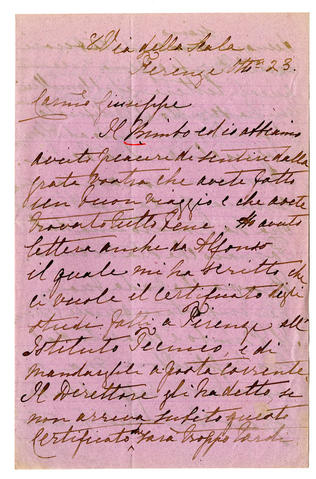 8 Via della Scala
Firenze 23.
Carmo Giuseppe
Il Bimbo ed io abbiamo
avuto piacere di sentire dalla
grata vostra che avete fatto
un buon viaggio e che avete
trovato tutto bene. Ho avuto
lettera anche da Alfonso
il quale mi ha scritto che
ci vuole il certificato degli
studi fatti a Firenze all'
Istituto Tecnico, e di
mandarglielo a posta corrente
Il Direttore gli ha detto, se
non arriva subito questo
Certificato, sara troppo tardi